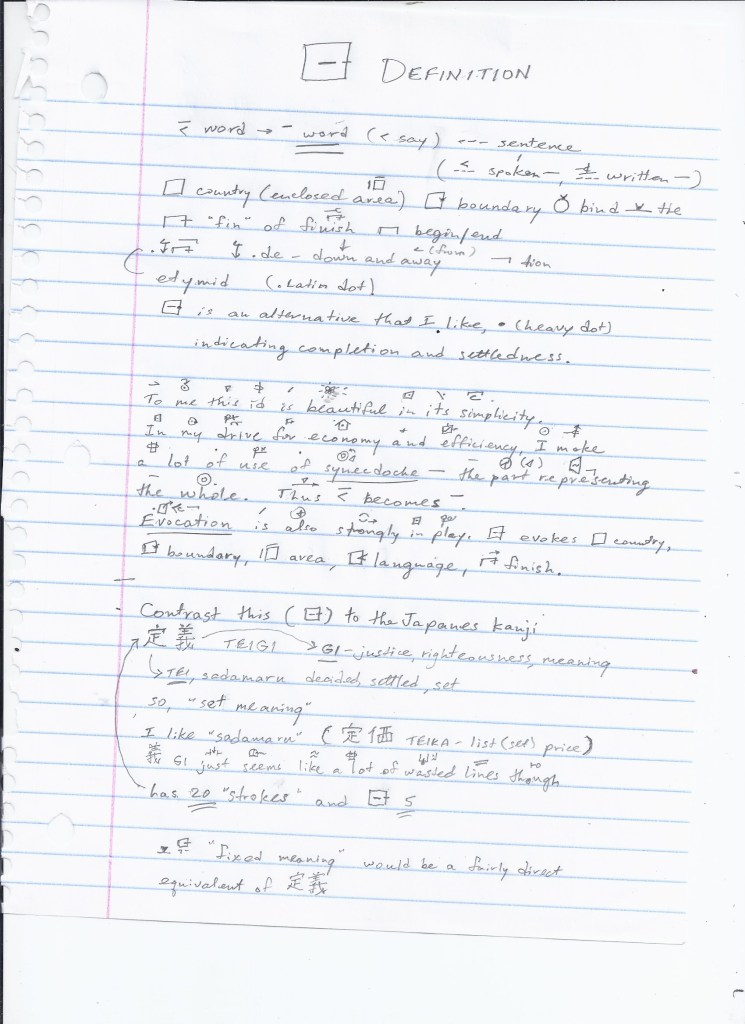 DEFINITION
word → - word (< say) --- sentence
(spoken —, written —)
country (enclosed area) boundary bind the
"fin" of finish begin/end
.de - down and away (from) tion
etymid (. Latin dot)
is an alternative that I like, • (heavy dot)
indicating completion and settledness.
To me this id is beautiful in its simplicity.
In my drive for economy and efficiency, I make
a lot of use of synecdoche — the part representing
the whole. Thus < becomes -.
Evocation is also strongly in play. evokes country,
boundary, area, language, finish.
Contrast this ( ) to the Japanes kanji
定義 TEIGI → GI - justice, righteousness, meaning
→ TEI, sadamaru decided, settled, set
so, "set meaning"
I like "sadamaru" (定価 TEIKA - list (set) price)
義 GI just seems like a lot of wasted lines though
has 20 "strokes" and 5
"fixed meaning" would be a fairly direct
equivalent of 定義